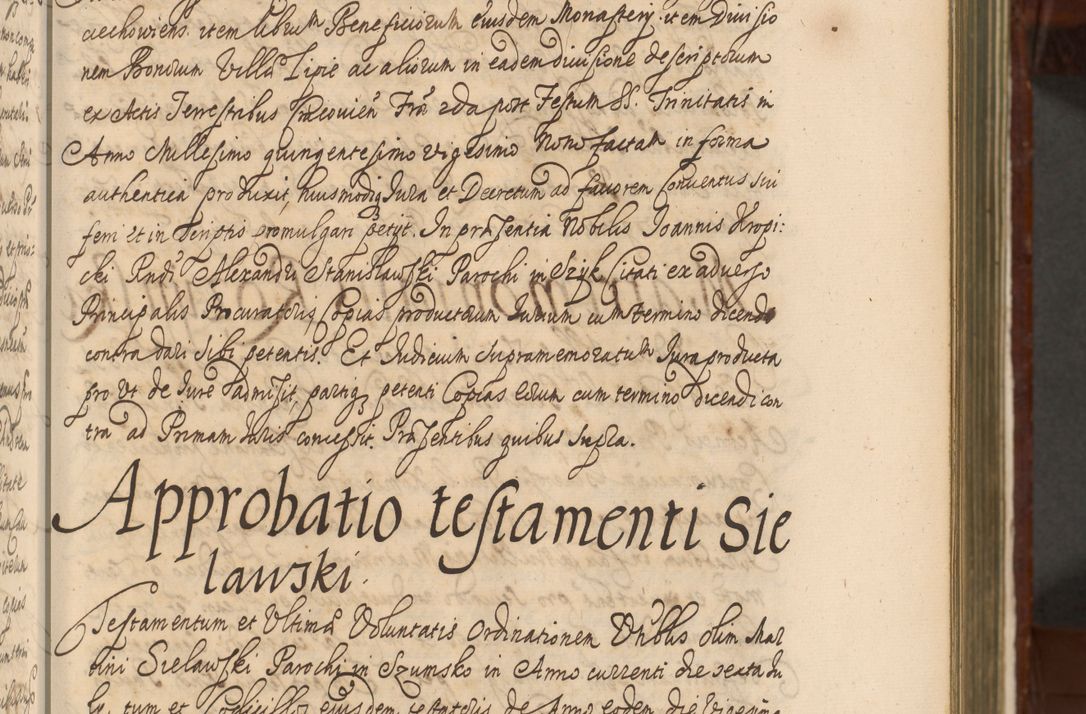 aechowiens. item librum Beneficiorum eiusdem Monastery. item Divisio
nem Bonorum Villæ Lipie ac aliorum in eadem divisione descriptorum
ex Actis Terrestribus Fra 2da post Festum SS. Trinitatis in
Anno Millesimo quingentesimo vigesimo Nono factam in forma
authentica produxit, huiusmodiq Jura et Decretum ad favorem Conventus sui
ferri et in scriptis promulgari petyt. In præsentia Nobilis Joannis Kropi:
cki Rndi Alexandri Stanisławski Parochi in citati ex adverso
Principalis Procuratoris, Copias productorum Jurium cum termino dicendi
contra dari sibi petentis. Et Judicium supramemoratum Jura producta
pro ut de Jure admisit, partiq petenti Copias eorum cum termino dicendi con
tra ad Primam Juris concessit. Præsentibus quibus supra.
Approbatio testamenti Sie
lawski.
Testamentum et Ultimæ Voluntatis Ordinationem Vrblis olim Mar
tini Sielawski Parochi in Szumsko in Anno currenti die sexta Ju
ly. tum et eiusdem testatoris de Anno eodem die Vigesima